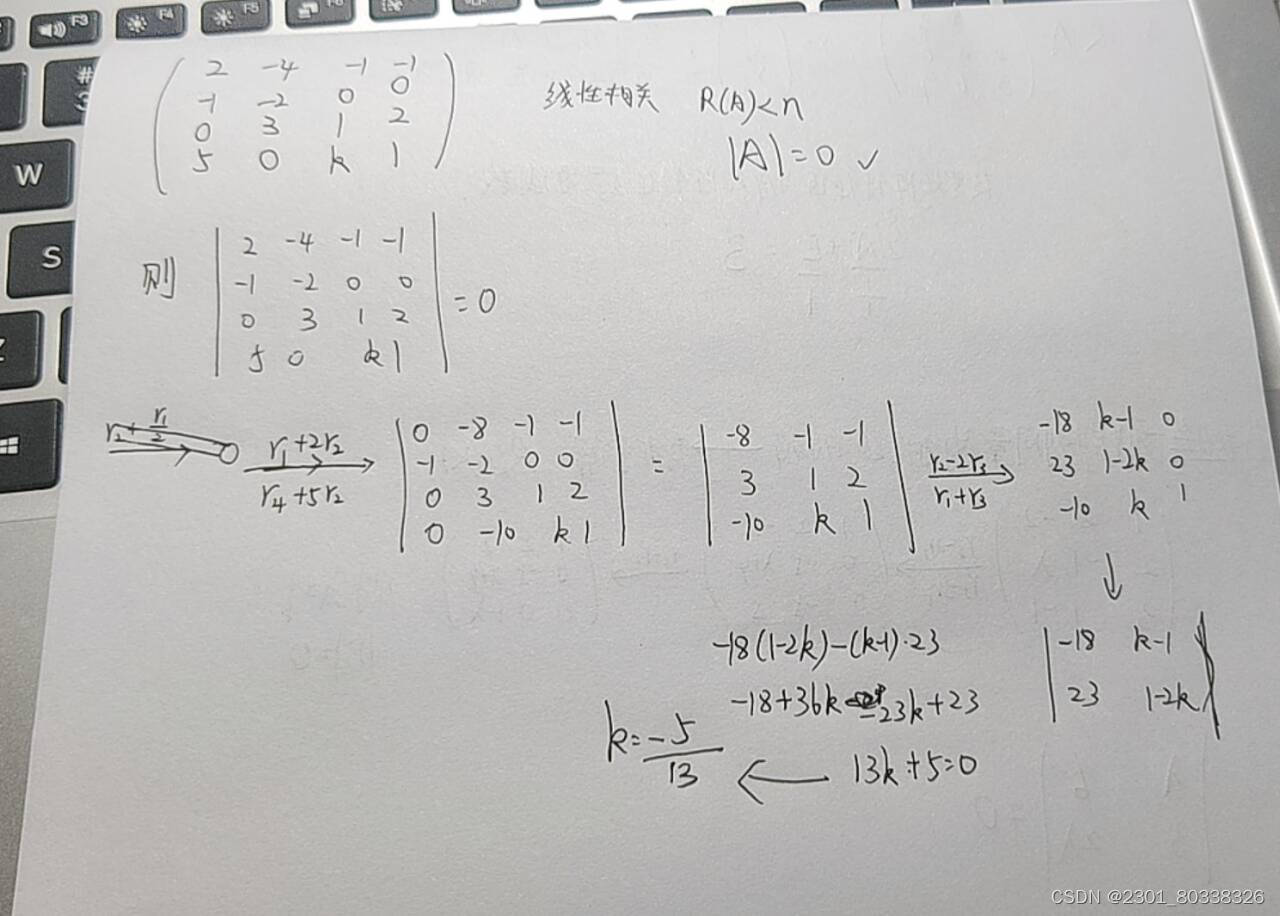 F3 F4 F5
#
3
W
S
2 -4 -1 -1
-1 -2 0 0
0 3 1 2
5 0 k 1
线性相关 R(A)<n
|A|=0 ✓
则
2 -4 -1 -1
-1 -2 0 0
0 3 1 2
5 0 k 1
=0
r₂+r₁/2
r₁+2r₂
r₄+5r₂
0 -8 -1 -1
-1 -2 0 0
0 3 1 2
0 -10 k 1
=
-8 -1 -1
3 1 2
-10 k 1
r₂-2r₃
r₁+r₃
-18 k-1 0
23 1-2k 0
-10 k 1
↓
-18 k-1
23 1-2k
-18(1-2k)-(k-1)·23
-18+36k-23k+23
13k+5=0
←
k=-5/13
CSDN @2301_80338326